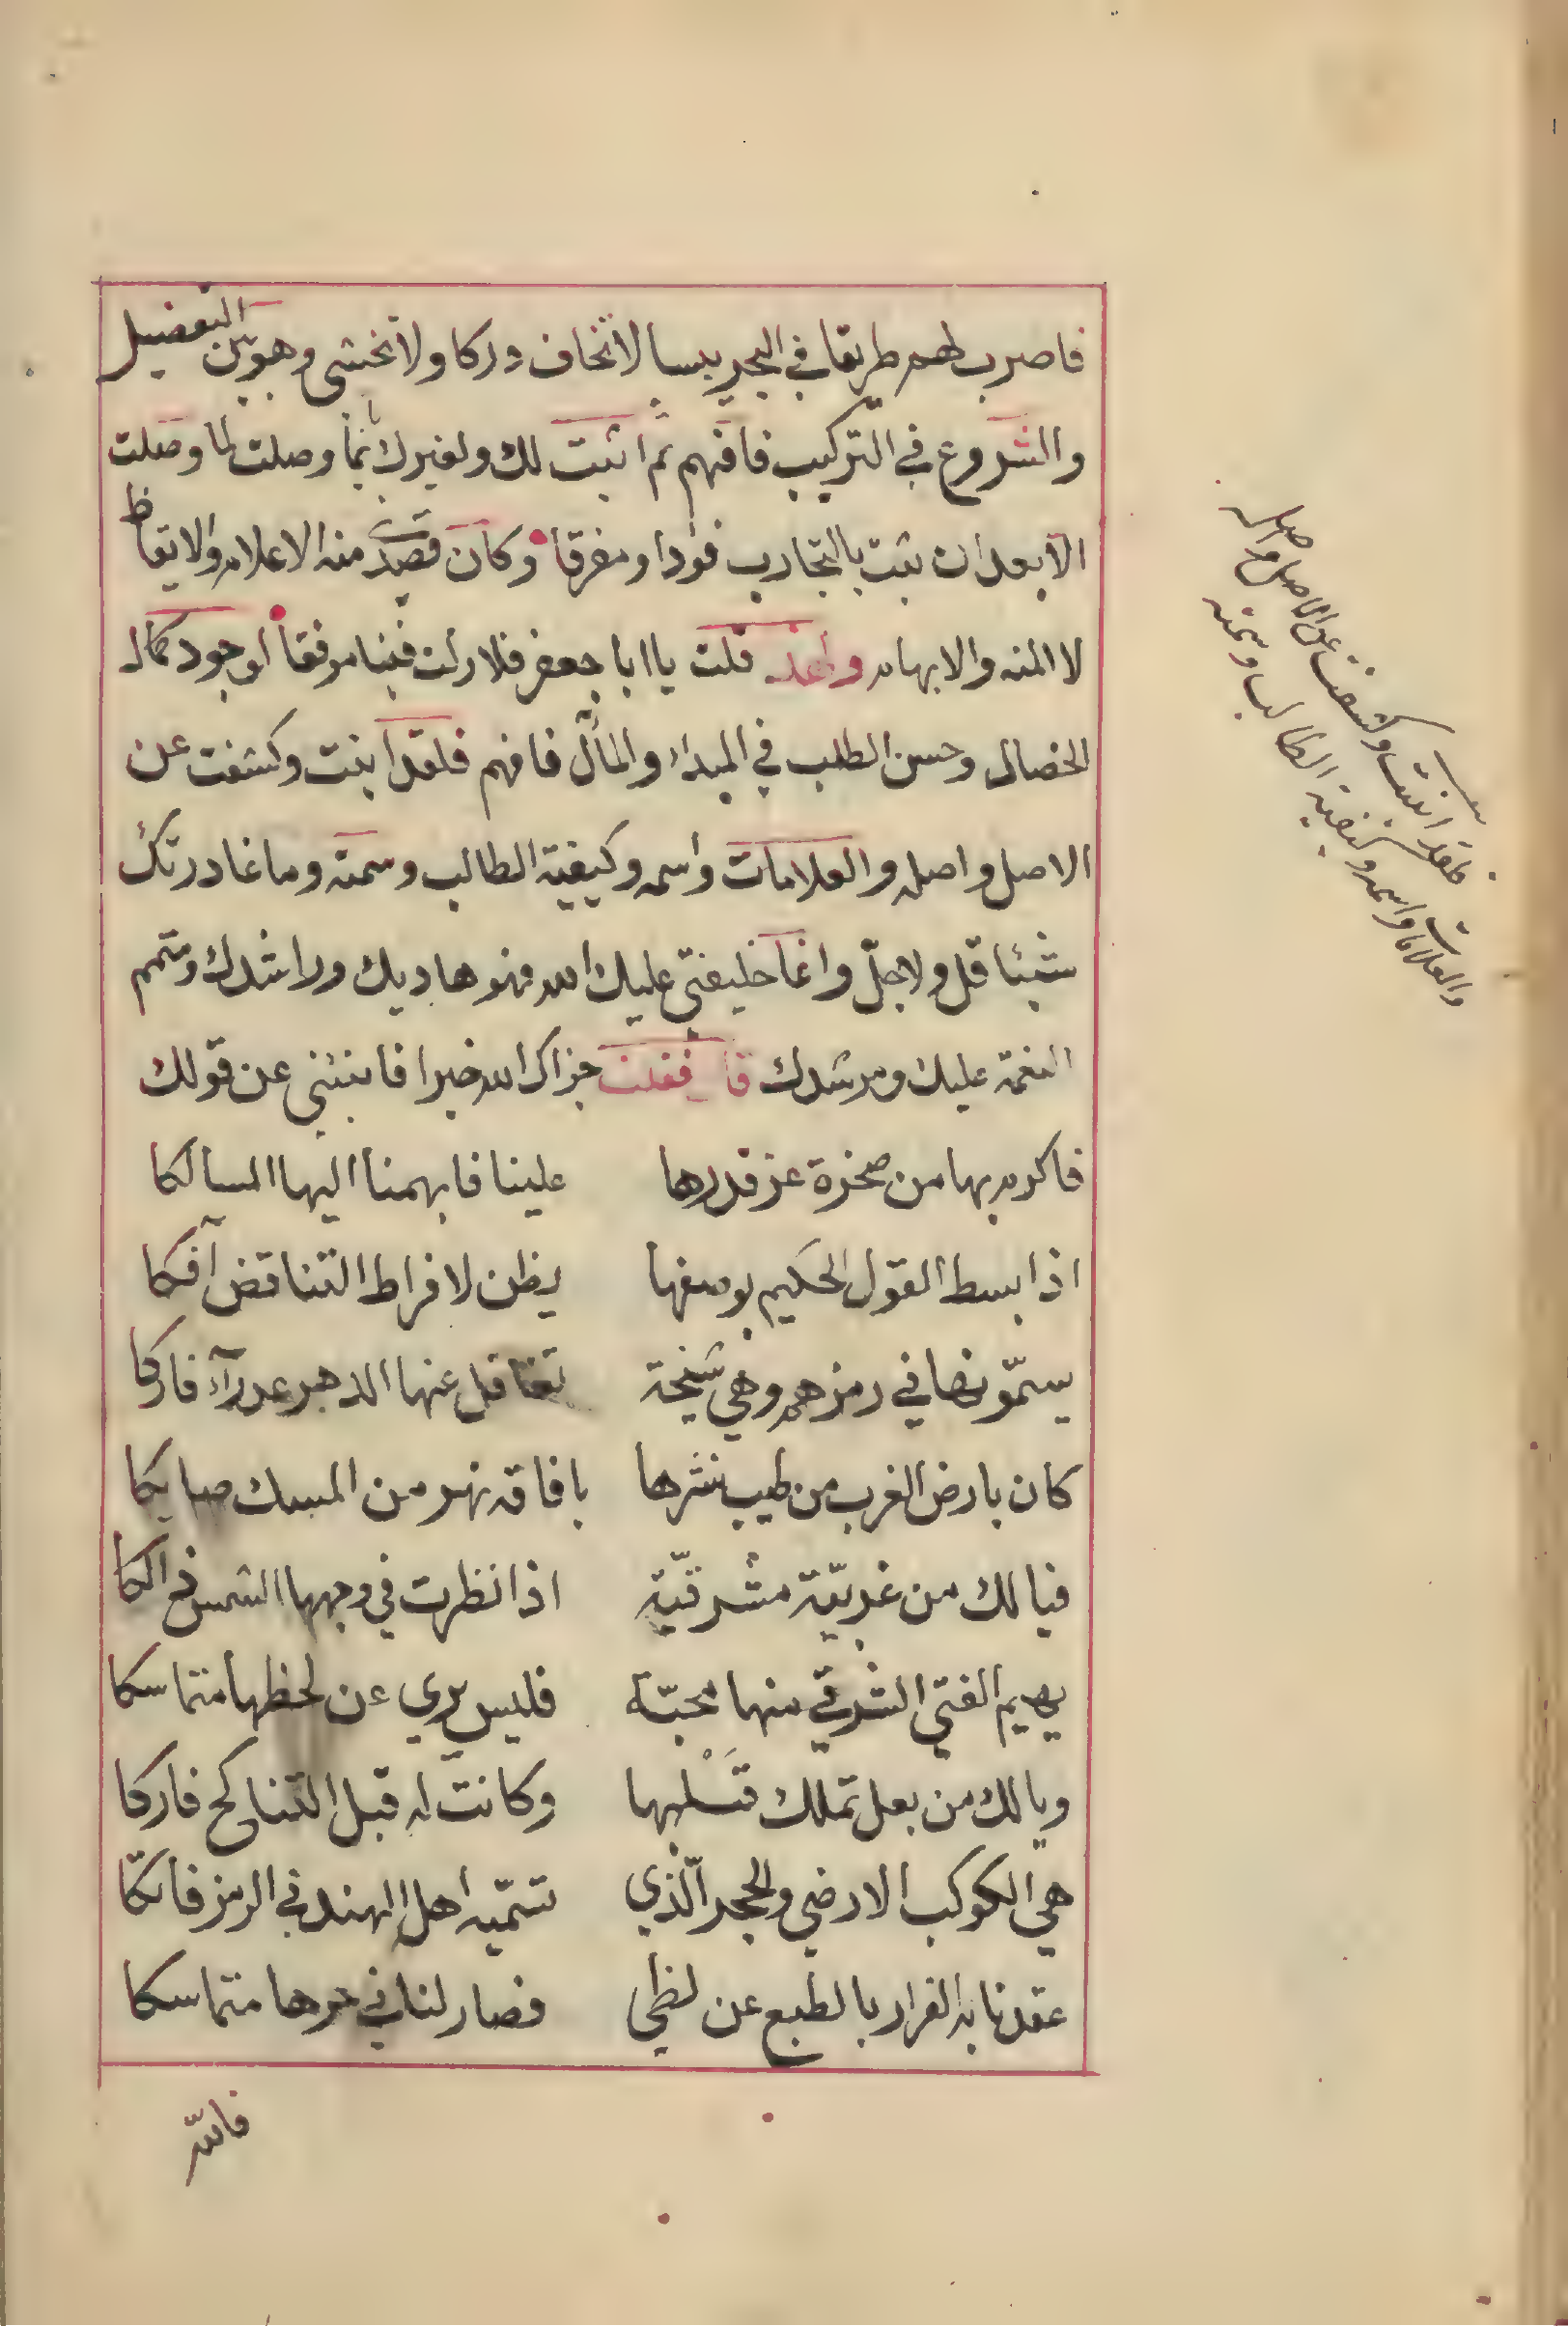 فاضرب لهم طريقا في البحر يبسا لا تخاف دركا ولا تخشى وهو بين التفصيل
والشروع في التركيب فافهم ثم اثبت لك ولغيرك بما وصلت لما وصلت
الا بعد ان بثت بالتجارب فؤادا ومفرقا وكان قصدي منه الاعلام والايقاظ
لا المنه والابهام قلت يا ابا جعفر فلا زلت فينا مرفقا لوجود كمال
الخصال وحسن الطلب في المبداء والمآل فافهم فلقد ابنت وكشفت عن
الاصل واصله والعلامات واسمه وكيفية الطالب وسمته وما غادرتك
شيئا قل ولا جل وانما خليفتي عليك الله فهو هاديك وراشدك ومتمم
النعمة عليك ومرشدك قال فقلت جزاك الله خيرا فانبئني عن قولك
فاكرم بها من صخرة عز قدرها علينا فابهمنا اليها المسالكا
اذا بسط القول الحكيم بوصفها يظن لافراط التناقض آفكا
يسمّونها في رمزهم وهي شيخة تغافل عنها الدهر عذرآء فاركا
كان بارض الغرب من طيب نشرها بافاقه نهر من المسك صايكا
فيالك من غربيّة مشرقيّة اذا نظرت في وجهها الشمس دالكا
يهيم الفتي الشرقي منها محبّة فليس يري عن لحظها متماسكا
ويالك من بعل تملك قلبها وكانت له قبل التناكح فاركا
هي الكوكب الارضي والحجر الّذي تسّميه اهل الهند في الرمز فاتكا
عقدنا به الفرار بالطبع عن لظي فصار لنا في حرها متماسكا
فالله
فلقد ابنت وكشفت عن الاصل واصله
والعلامات واسمه وكيفية الطالب وسمته